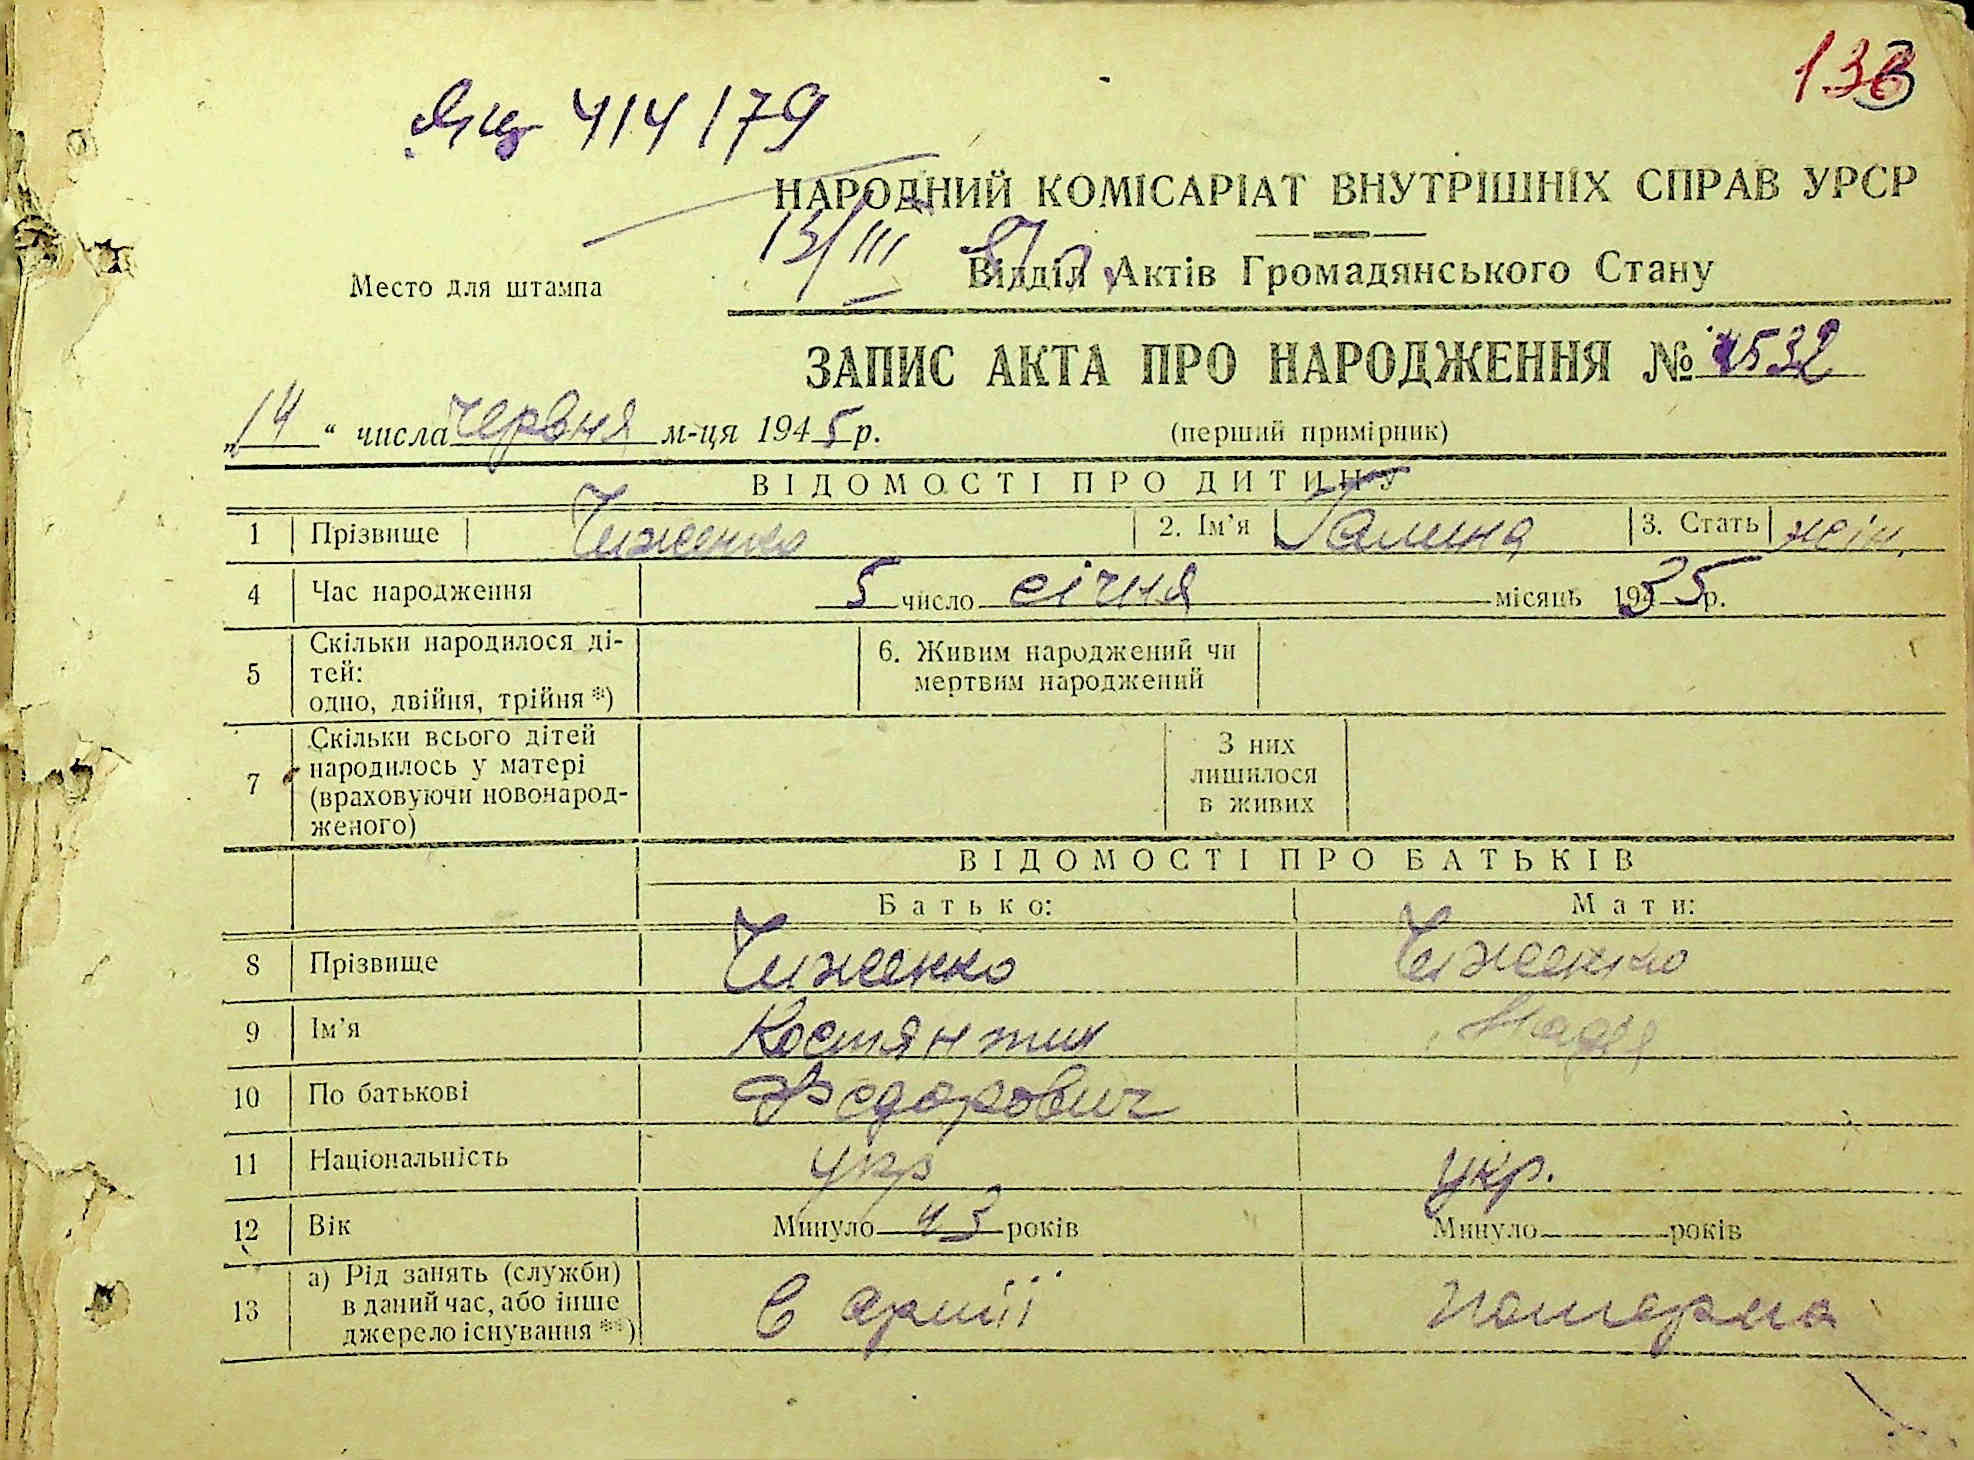 133
Яц 414179
НАРОДНИЙ КОМІСАРІАТ ВНУТРІШНІХ СПРАВ УРСР
13/III
Место для штампа
Відділ Актів Громадянського Стану
ЗАПИС АКТА ПРО НАРОДЖЕННЯ № 1532
„14“ числа червня м-ця 1945 р.
(перший примірник)
ВІДОМОСТІ ПРО ДИТИНУ
1 Прізвище Чиженко 2. Ім'я Галина 3. Стать жін.
4 Час народження 5 число січня місяць 1935 р.
5 Скільки народилося ді-
тей:
одно, двійня, трійня *)
6. Живим народжений чи
мертвим народжений
7 Скільки всього дітей
народилось у матері
(враховуючи новонарод-
женого)
З них
лишилося
в живих
ВІДОМОСТІ ПРО БАТЬКІВ
Батько: Мати:
8 Прізвище Чиженко Чиженко
9 Ім'я Костянтин Надія
10 По батькові Федорович
11 Національність укр укр.
12 Вік Минуло 43 років Минуло років
13 а) Рід занять (служби)
в даний час, або інше
джерело існування **)
в армії померла